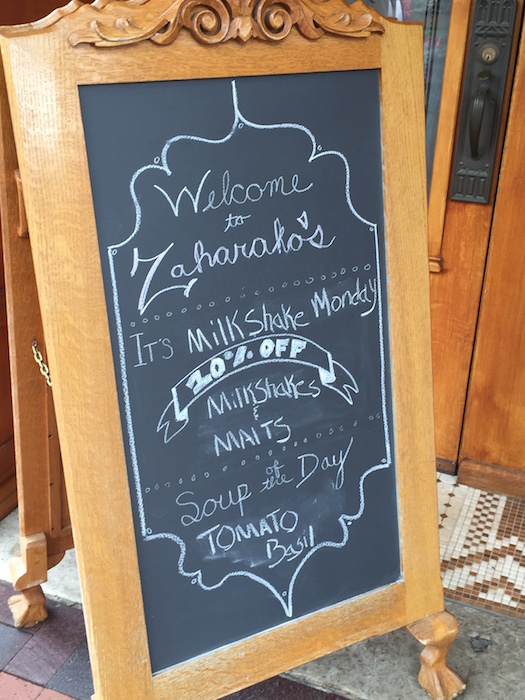 Welcome
to
Zaharako's
It's Milkshake Monday
20% OFF
Milkshakes
&
Malts
Soup of the Day
Tomato
Basil